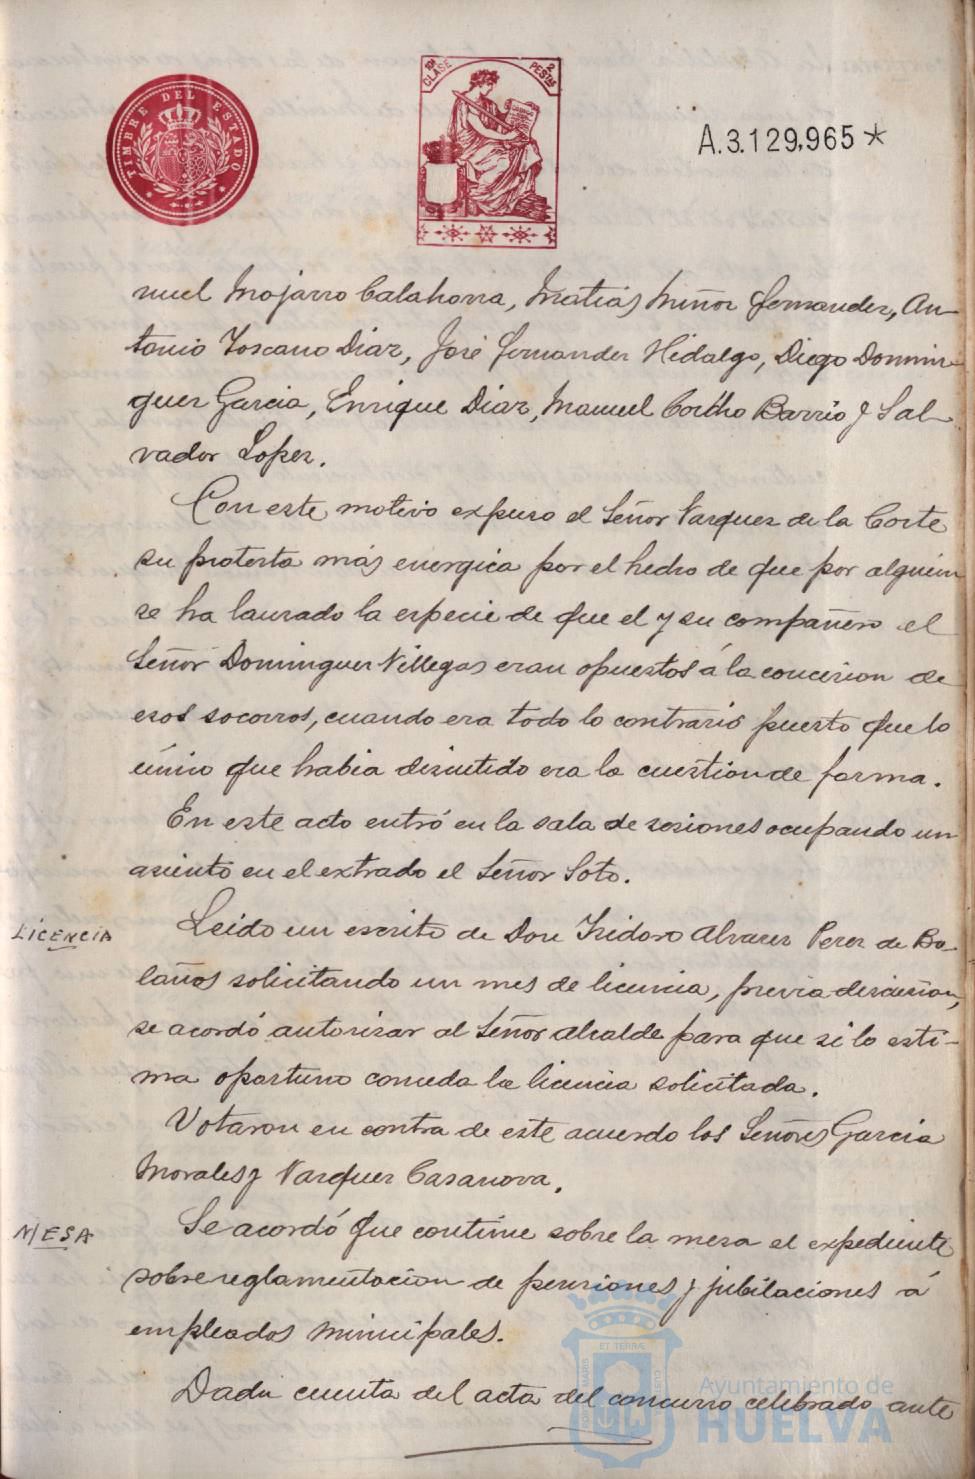 TIMBRE DEL ESTADO
10ª CLASE
2 PESTAS
A.3.129,965*
nuel Mojarro Calahorra, Matias Miñor Fernandez, An-
tonio Toscano Diaz, José Fernandez Hidalgo, Diego Domin-
guez Garcia, Enrique Diaz, Manuel Barrio y Sal-
vador Lopez.
Con este motivo expuso el Señor Vazquez de la Corte
su protesta más energica por el hecho de que por alguien
se ha lanzado la especie de que el y su compañero el
Señor Dominguez Villegas eran opuestos á la concesion de
esos socorros, cuando era todo lo contrario puesto que lo
único que habia discutido era la cuestion de forma.
En este acto entró en la sala de sesiones ocupando un
asiento en el extrado el Señor Soto.
LICENCIA
Leido un escrito de Don Isidoro Alvarez Perez de Bo-
laños solicitando un mes de licencia, previa discusion,
se acordó autorizar al Señor Alcalde para que si lo esti-
ma oportuno conceda la licencia solicitada.
Votaron en contra de este acuerdo los Señores Garcia
Morales y Vazquez Casanova.
MESA
Se acordó que continue sobre la mesa el expediente
sobre reglamentacion de pensiones y jubilaciones á
empleados municipales.
Dada cuenta del acta del concurso celebrado ante
Ayuntamiento de
HUELVA